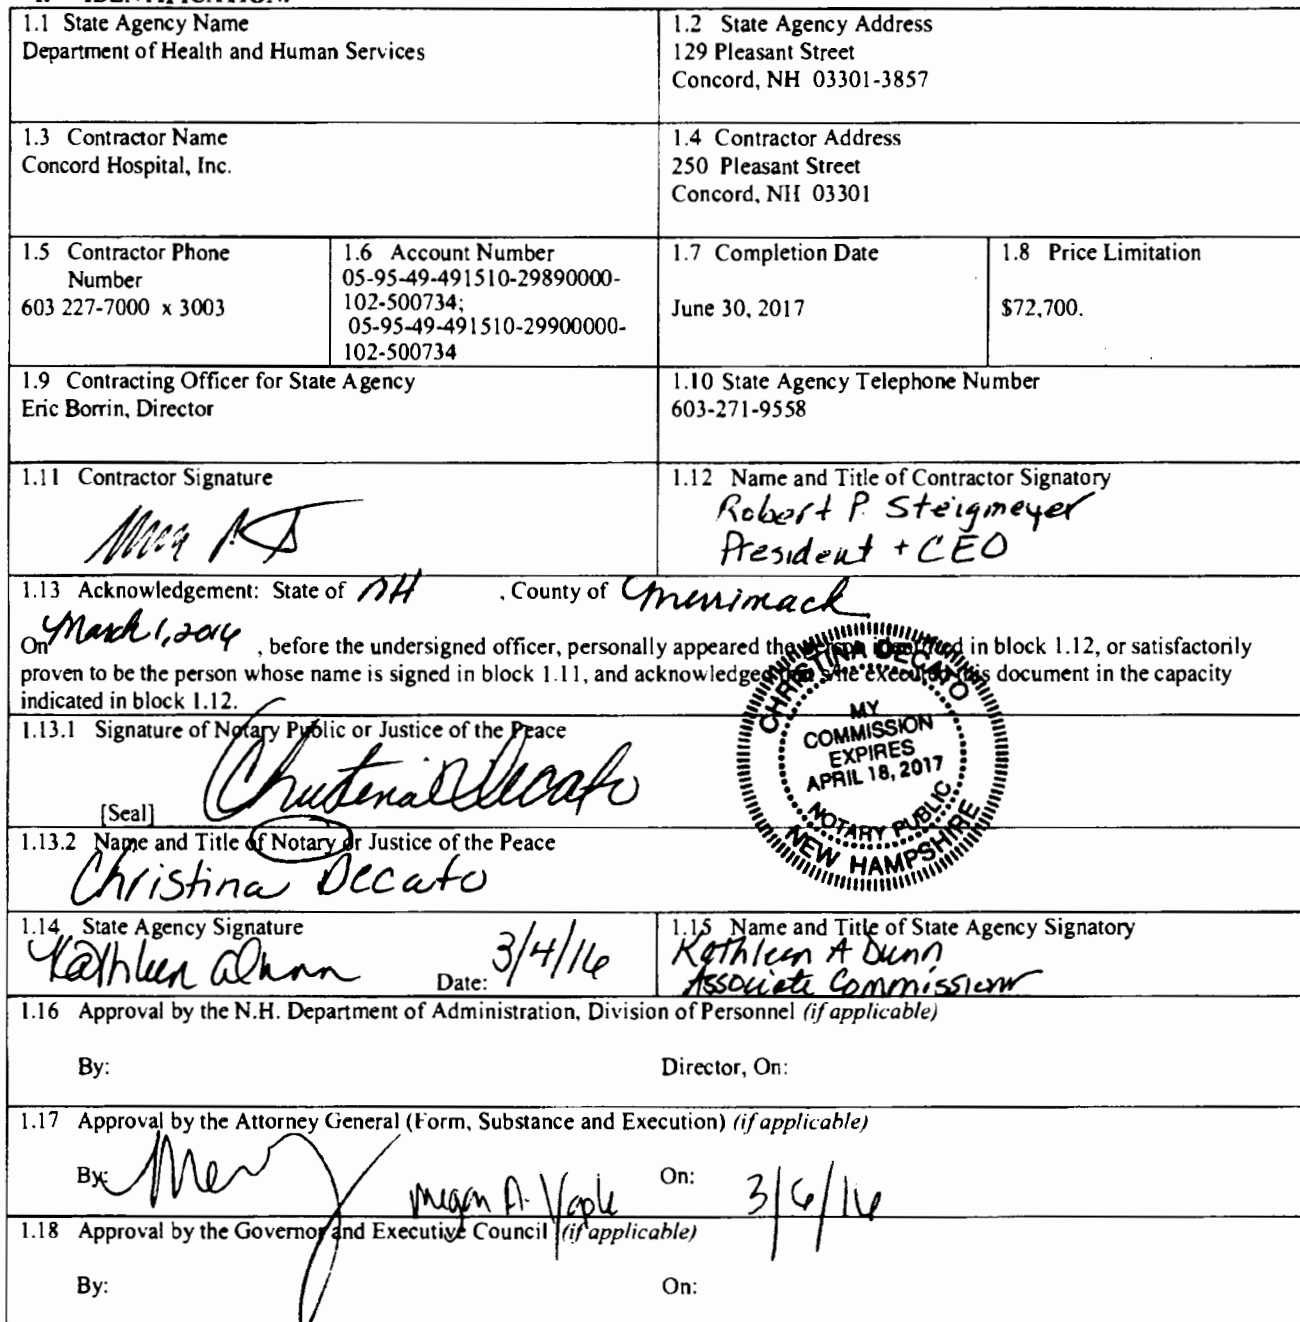 1.1 State Agency Name
Department of Health and Human Services
1.2 State Agency Address
129 Pleasant Street
Concord, NH 03301-3857
1.3 Contractor Name
Concord Hospital, Inc.
1.4 Contractor Address
250 Pleasant Street
Concord, NH 03301
1.5 Contractor Phone
Number
603 227-7000 x 3003
1.6 Account Number
05-95-49-491510-29890000-
102-500734;
05-95-49-491510-29900000-
102-500734
1.7 Completion Date
June 30, 2017
1.8 Price Limitation
$72,700.
1.9 Contracting Officer for State Agency
Eric Borrin, Director
1.10 State Agency Telephone Number
603-271-9558
1.11 Contractor Signature
1.12 Name and Title of Contractor Signatory
Robert P. Steigmeyer
President + CEO
1.13 Acknowledgement: State of NH , County of Merrimack
On March 1, 2016 , before the undersigned officer, personally appeared the person identified in block 1.12, or satisfactorily
proven to be the person whose name is signed in block 1.11, and acknowledged that s/he executed this document in the capacity
indicated in block 1.12.
1.13.1 Signature of Notary Public or Justice of the Peace
Christina Decato
[Seal]
CHRISTINA DECATO
MY
COMMISSION
EXPIRES
APRIL 18, 2017
NOTARY PUBLIC
NEW HAMPSHIRE
1.13.2 Name and Title of Notary or Justice of the Peace
Christina Decato
1.14 State Agency Signature
Kathleen A Dunn
Date: 3/4/16
1.15 Name and Title of State Agency Signatory
Kathleen A Dunn
Associate Commissioner
1.16 Approval by the N.H. Department of Administration, Division of Personnel (if applicable)
By: Director, On:
1.17 Approval by the Attorney General (Form, Substance and Execution) (if applicable)
By: Megan A. Yaple On: 3/6/16
1.18 Approval by the Governor and Executive Council (if applicable)
By: On: